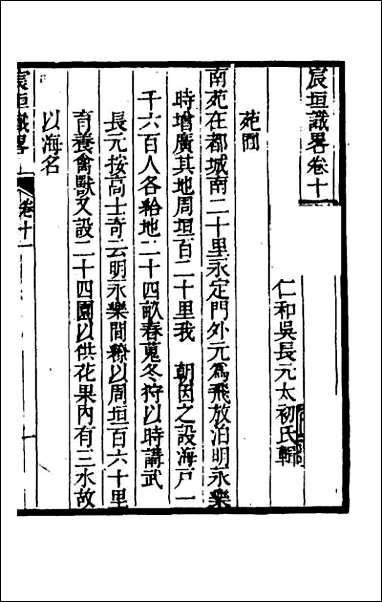 宸垣識畧卷十一
仁和吳長元太初氏輯
苑囿
南苑在都城南二十里永定門外元為飛放泊明永樂
時增廣其地周垣百二十里我　朝因之設海戶一
千六百人各給地二十四畝春蒐冬狩以時講武
長元按高士奇云明永樂間繚以周垣百六十里
育養禽獸又設二十四園以供花果內有三水故
以海名
宸垣識畧
卷十一
一